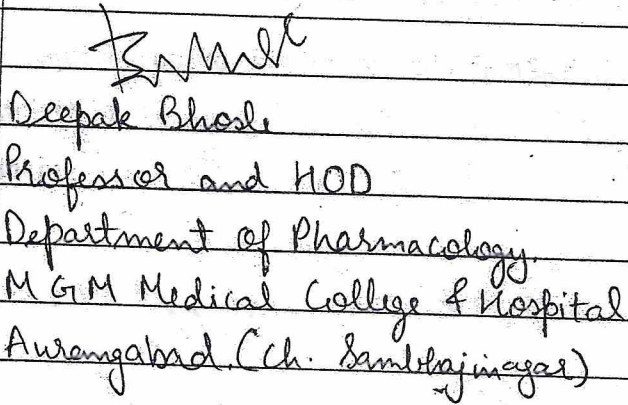 Deepak Bhosle
Professor and HOD
Department of Pharmacology.
M G M Medical College & Hospital
Aurangabad. (Ch. Sambhajinagar)